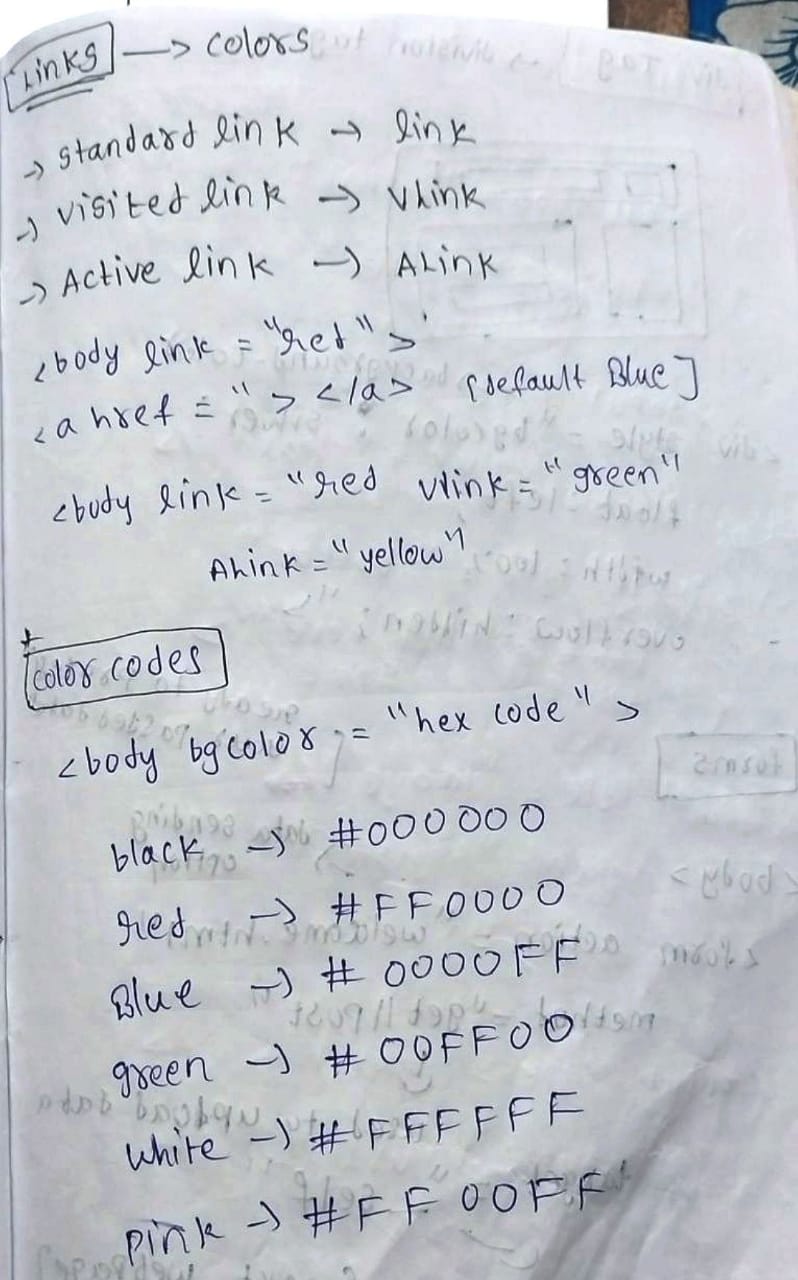 Links → colors
→ standard link → link
→ visited link → Vlink
→ Active link → ALink
<body link = "red" >
<a href = " > </a> [default Blue]
<body link = "red vlink = "green"
ALink = "yellow"
color codes
<body bgcolor = "hex code" >
black → #000000
red → #FF0000
Blue → #0000FF
green → #00FF00
white → #FFFFFF
pink → #FF00FF